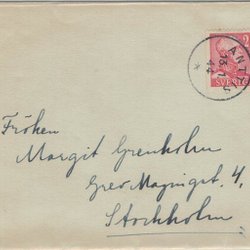 ANTTIS
13.1
44
Fröken
Margit Grenholm
Grev Magnigat. 4
Stockholm